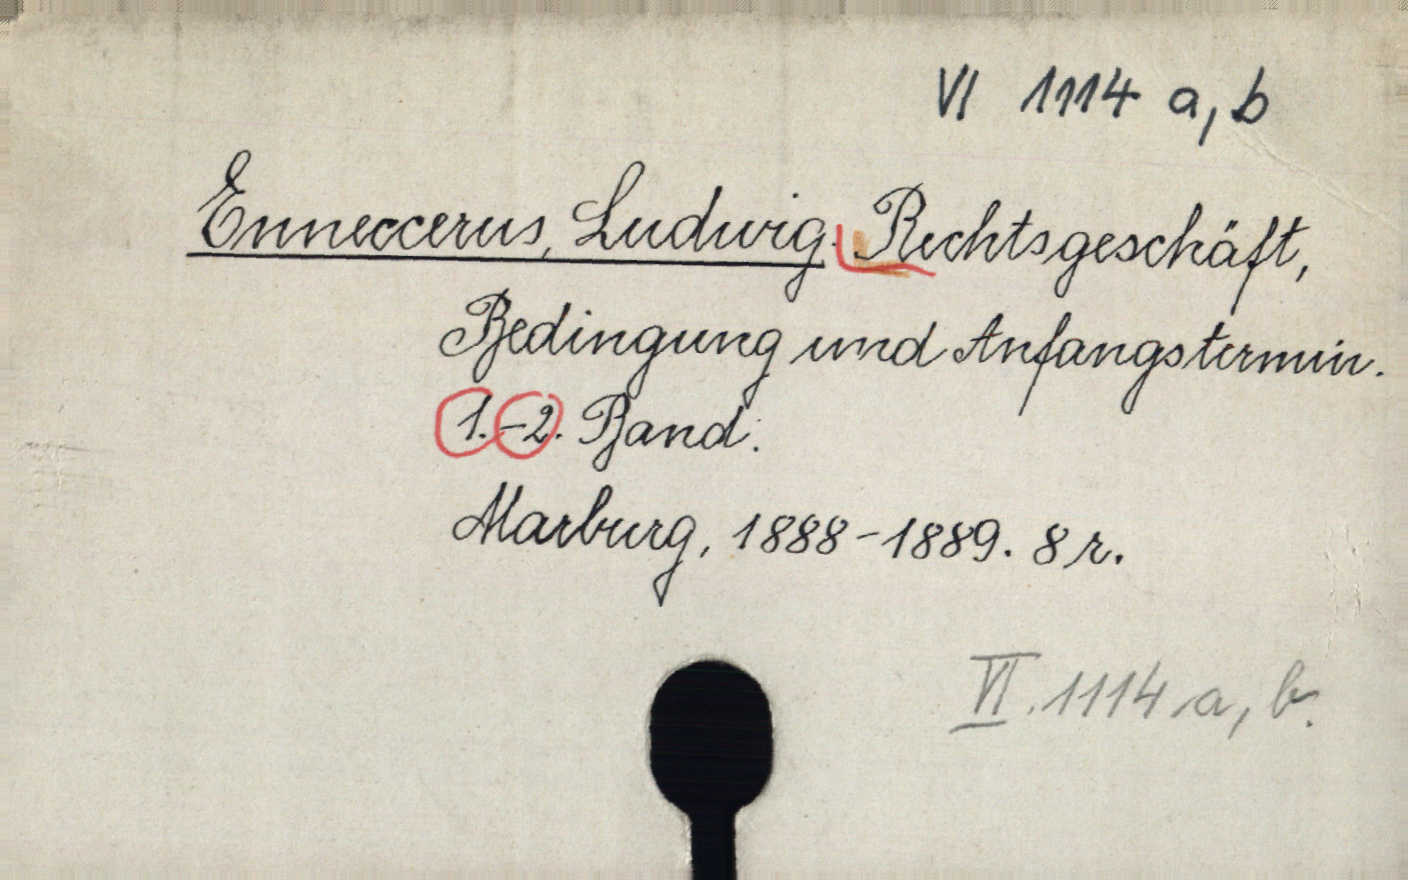 VI 1114 a, b
Enneccerus, Ludwig. Rechtsgeschäft,
Bedingung und Anfangstermin.
1.-2. Band.
Marburg, 1888-1889. 8 r.
VI. 1114 a, b.